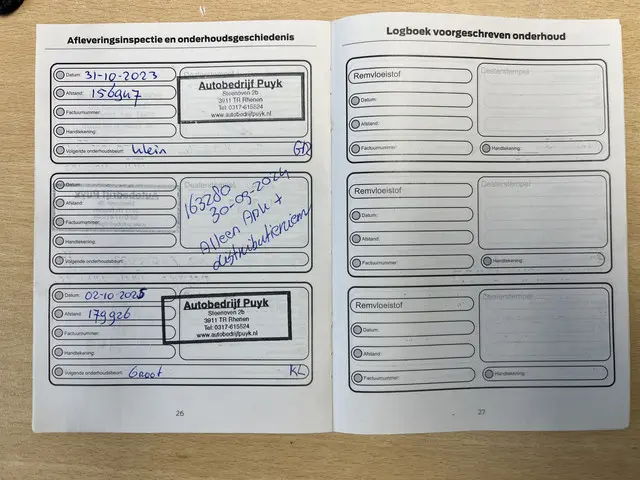 Afleveringsinspectie en onderhoudsgeschiedenis
Datum: 31-10-2023
Afstand: 156947
Factuurnummer:
Handtekening:
Volgende onderhoudsbeurt: klein
Autobedrijf Puyk
Steenoven 2b
3911 TR Rhenen
Tel: 0317-615524
www.autobedrijfpuyk.nl
Datum:
Afstand:
Factuurnummer:
Handtekening:
Volgende onderhoudsbeurt:
163280
30-09-2024
Alleen Apk +
distributieriem
Datum: 02-10-2025
Afstand: 179926
Factuurnummer:
Handtekening:
Volgende onderhoudsbeurt: Groot KL
Autobedrijf Puyk
Steenoven 2b
3911 TR Rhenen
Tel: 0317-615524
www.autobedrijfpuyk.nl
26
Logboek voorgeschreven onderhoud
Remvloeistof
Dealerstempel
Datum:
Afstand:
Factuurnummer:
Handtekening:
Remvloeistof
Dealerstempel
Datum:
Afstand:
Factuurnummer:
Handtekening:
Remvloeistof
Dealerstempel
Datum:
Afstand:
Factuurnummer:
Handtekening:
27